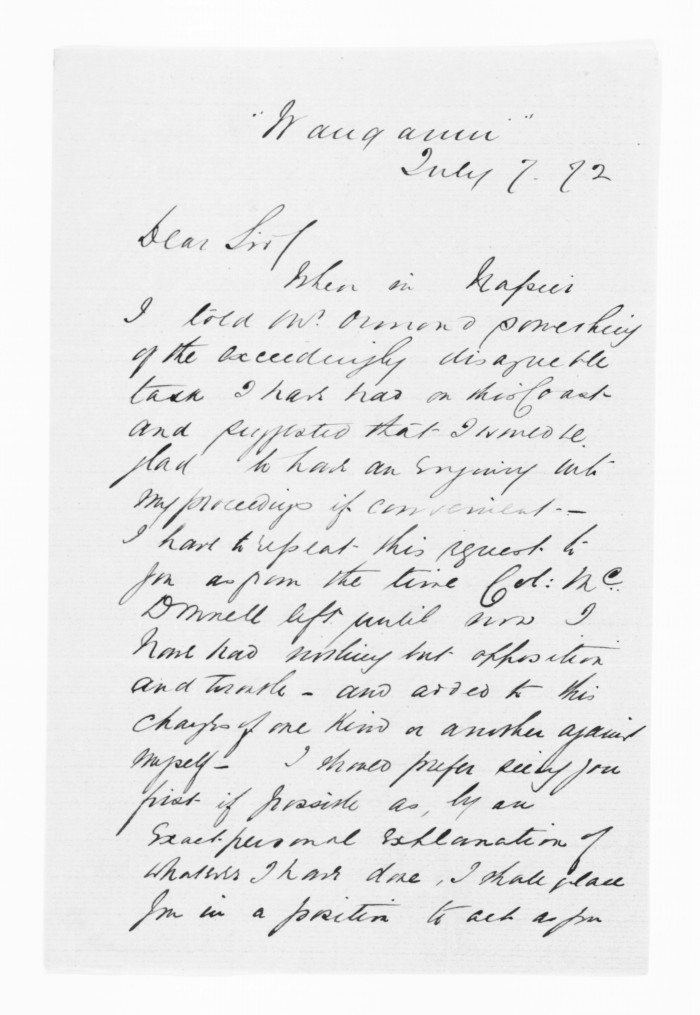 "Wanganui"
July 7. 72
Dear Sir/
When in Napier
I told Mr. Ormond something
of the exceedingly disagreeable
task I have had on this Coast
and suggested that I would be
glad to have an Enquiry into
my proceedings if convenient –
I have to repeat this request to
you as from the time Col: Mc.
Donnell left until now I
have had nothing but opposition
and trouble – and added to this
charges of one kind or another against
myself – I should prefer seeing you
first if possible as, by an
Exact personal Explanation of
whatever I have done, I shall place
you in a position to act as you